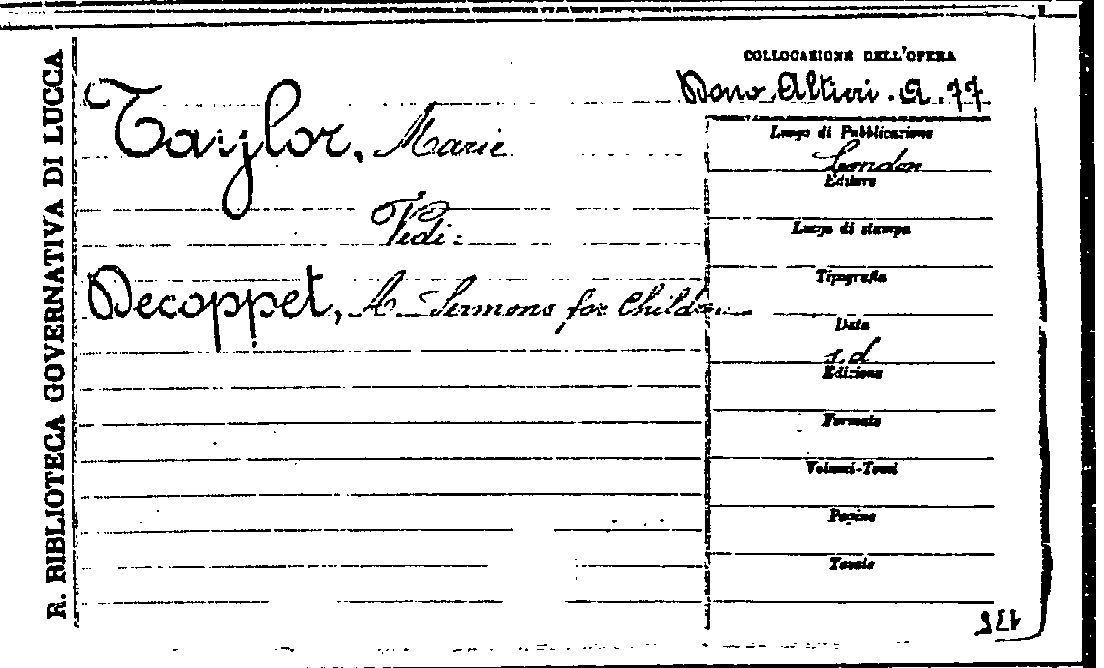 R. BIBLIOTECA GOVERNATIVA DI LUCCA
COLLOCAZIONE DELL'OPERA
Dono Altieri. A. 77
Taylor, Marie
Vedi:
Decoppet, A Sermons for Children
Luogo di Pubblicazione
London
Editore
Luogo di stampa
Tipografia
Data
s.d
Edizione
Formato
Volumi-Tomi
Pagine
Tavole